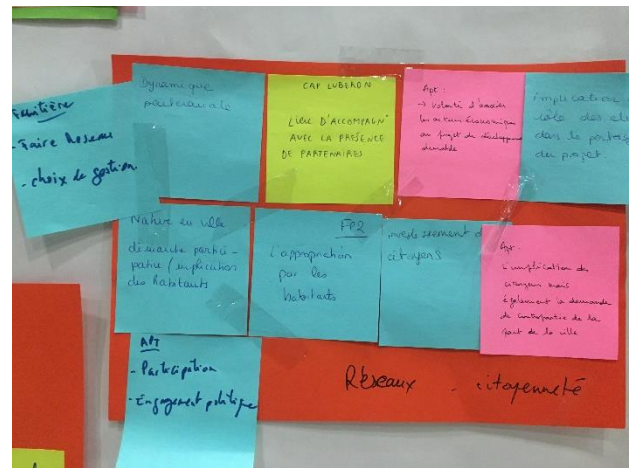 Faire Reseau
- choix de gestion
Dynamique
partenariale
CAP LUBERON
LIEU D'ACCOMPAGNT
AVEC LA PRÉSENCE
DE PARTENAIRES
Apt :
→ volonté d'associer
les acteurs économiques
au projet de développement
durable
implication
rôle des él
dans le portage
du projet.
Nature en ville
démarche partici-
pative / implication
des habitants
FP2
L'appropriation
par les
habitants
investissement d
citoyens
Apt.
L'implication des
citoyens mais
également la demande
de contrepartie de la
part de la ville
APT
- Participation
- Engagement politique
Réseaux - citoyenneté